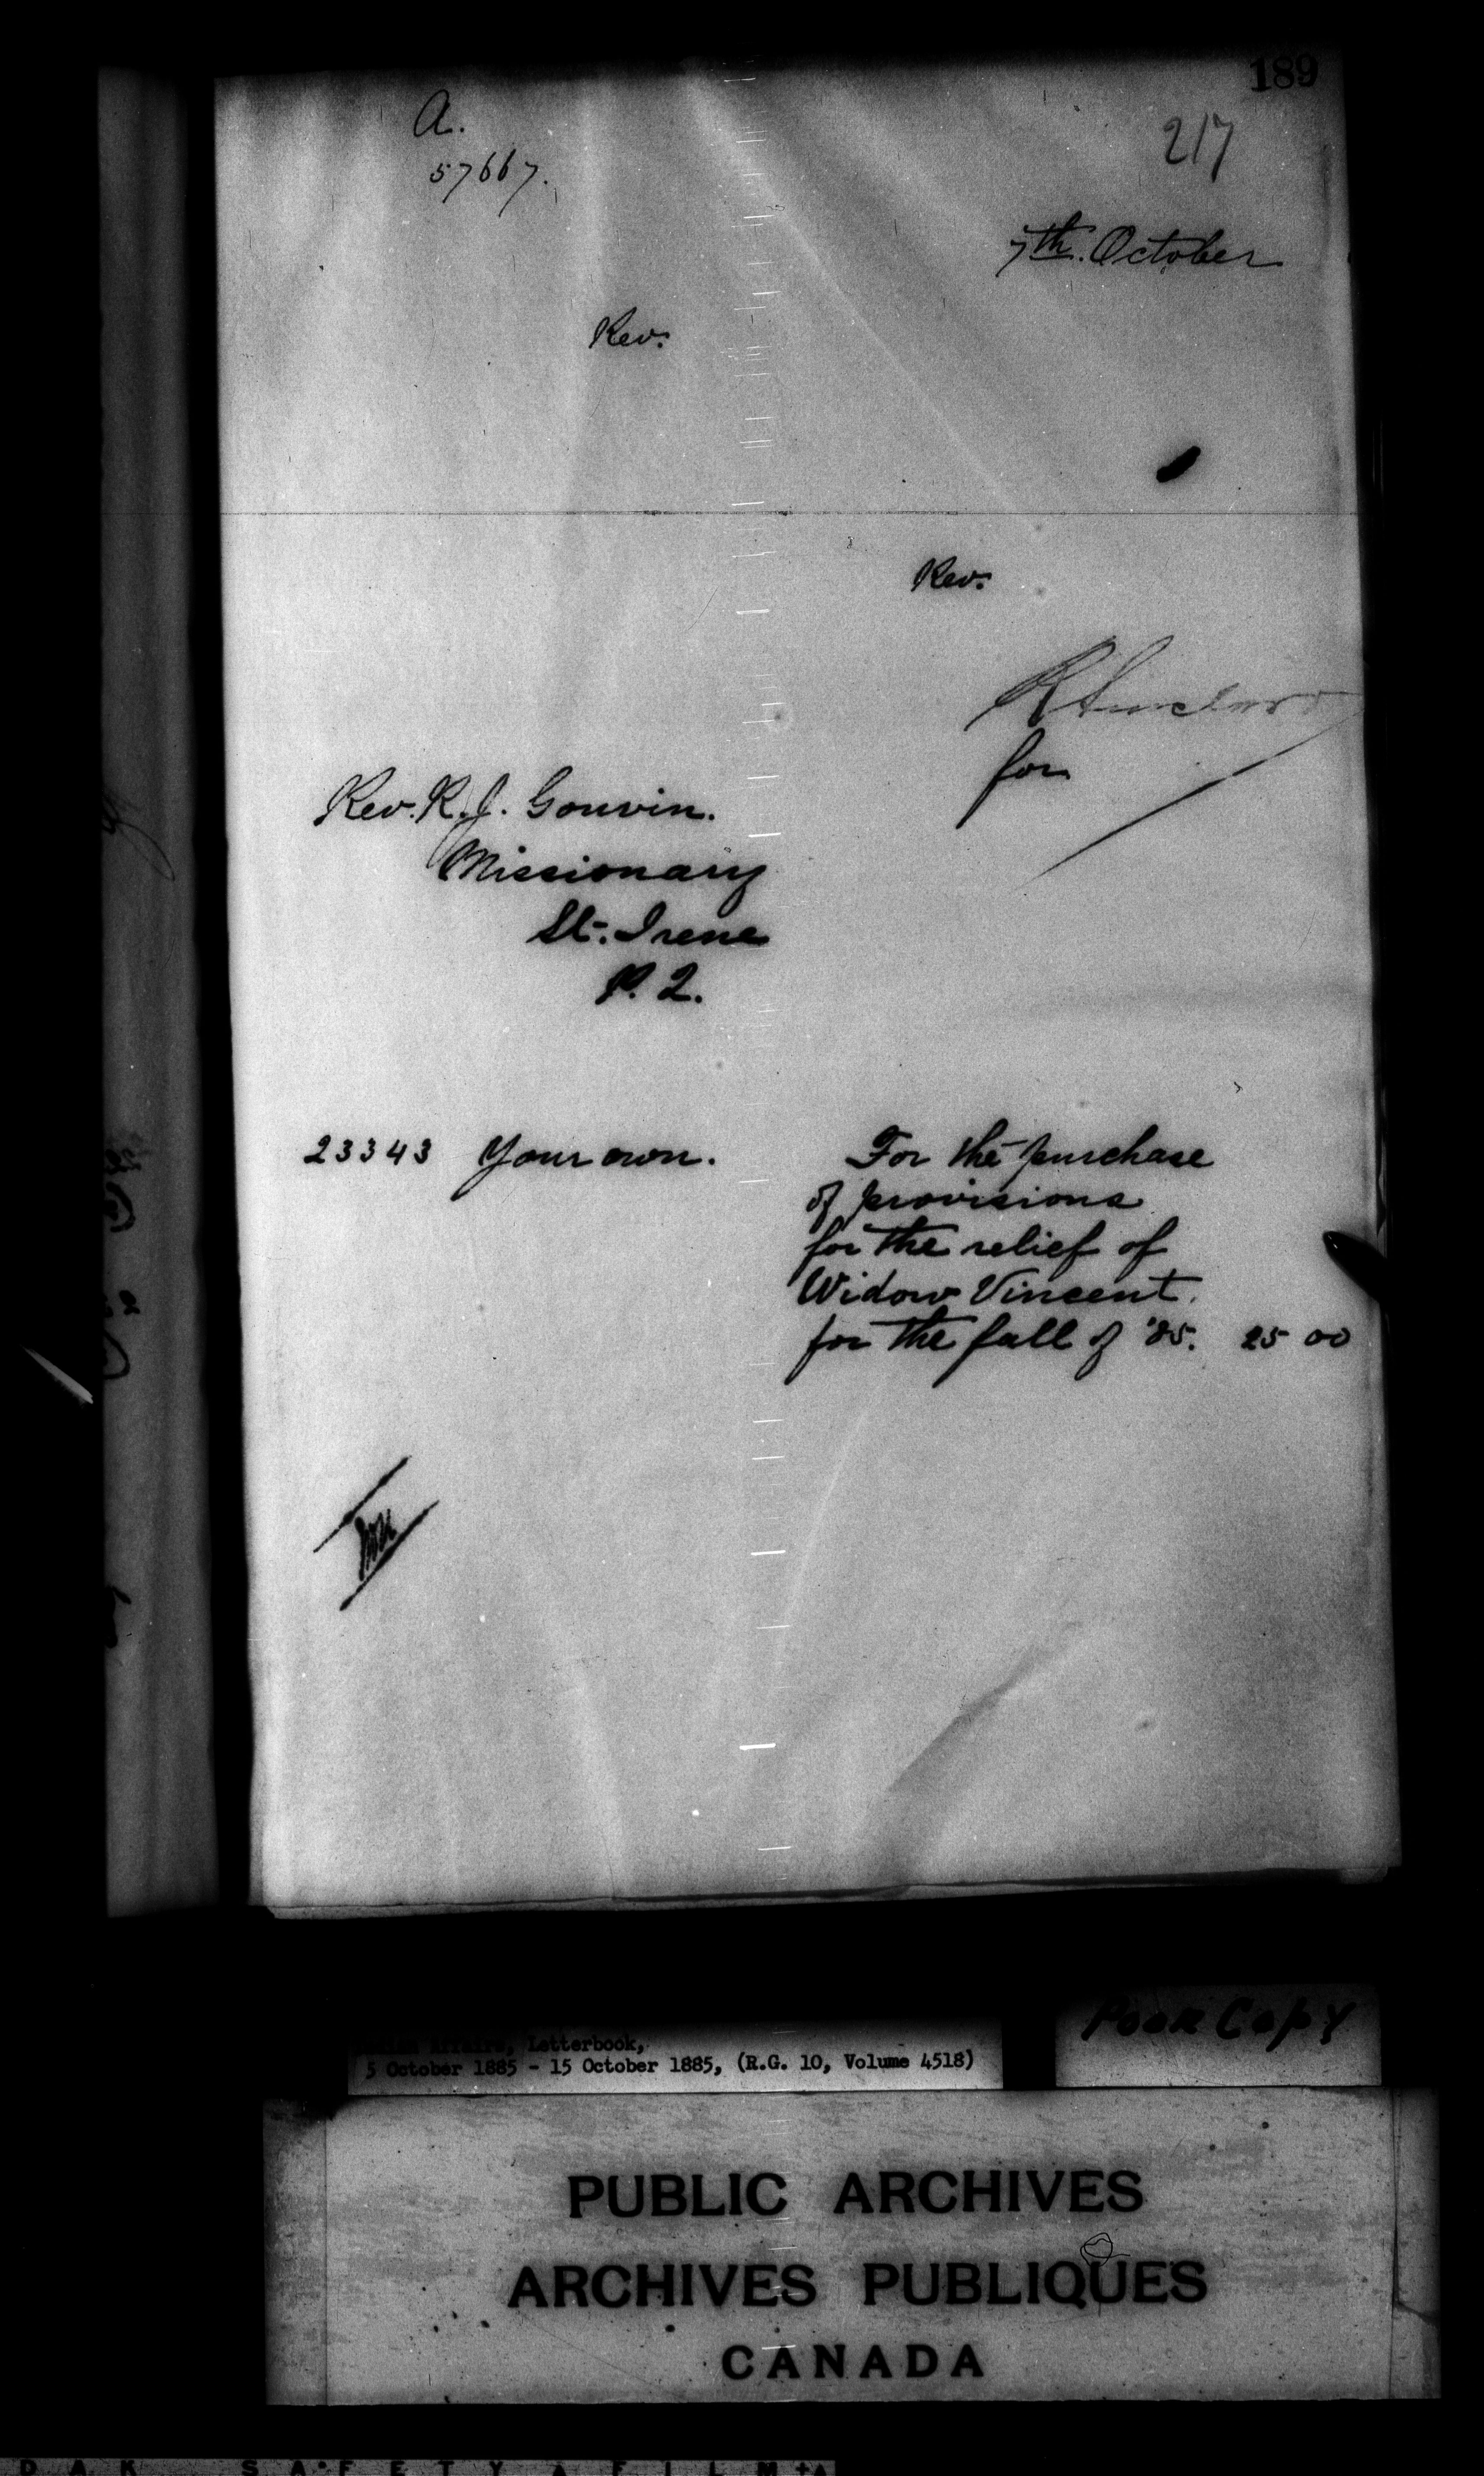 189
217
A.
57667.
7th. October
Rev.
Rev.
for
Rev. R. J. Gouvin.
Missionary
St. Irene
P. Q.
23343 Your own. For the purchase
of provisions
for the relief of
Widow Vincent.
for the fall of '85. 25 00
Affairs, Letterbook,
5 October 1885 - 15 October 1885, (R.G. 10, Volume 4518)
Poor Copy
PUBLIC ARCHIVES
ARCHIVES PUBLIQUES
CANADA
D A K S A F E T Y A F I L M